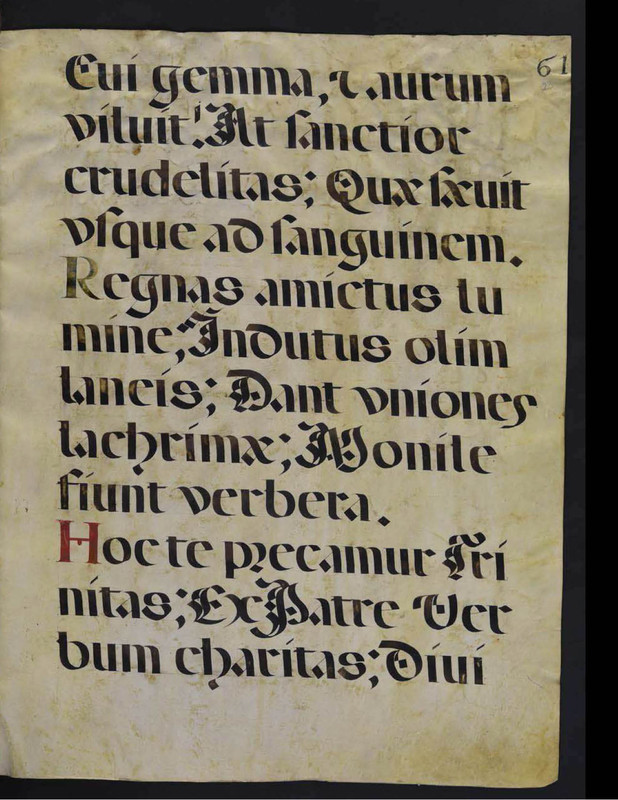 61
Cui gemma, & aurum
viluit! At ſanctior
crudelitas; Quæ ſæuit
vſque ad ſanguinem.
Regnas amictus lu
mine; Indutus olim
laneis; Dant vniones
lachrimæ; Monile
fiunt verbera.
Hoc te precamur Tri
nitas; Ex Patre Ver
bum charitas; Diui